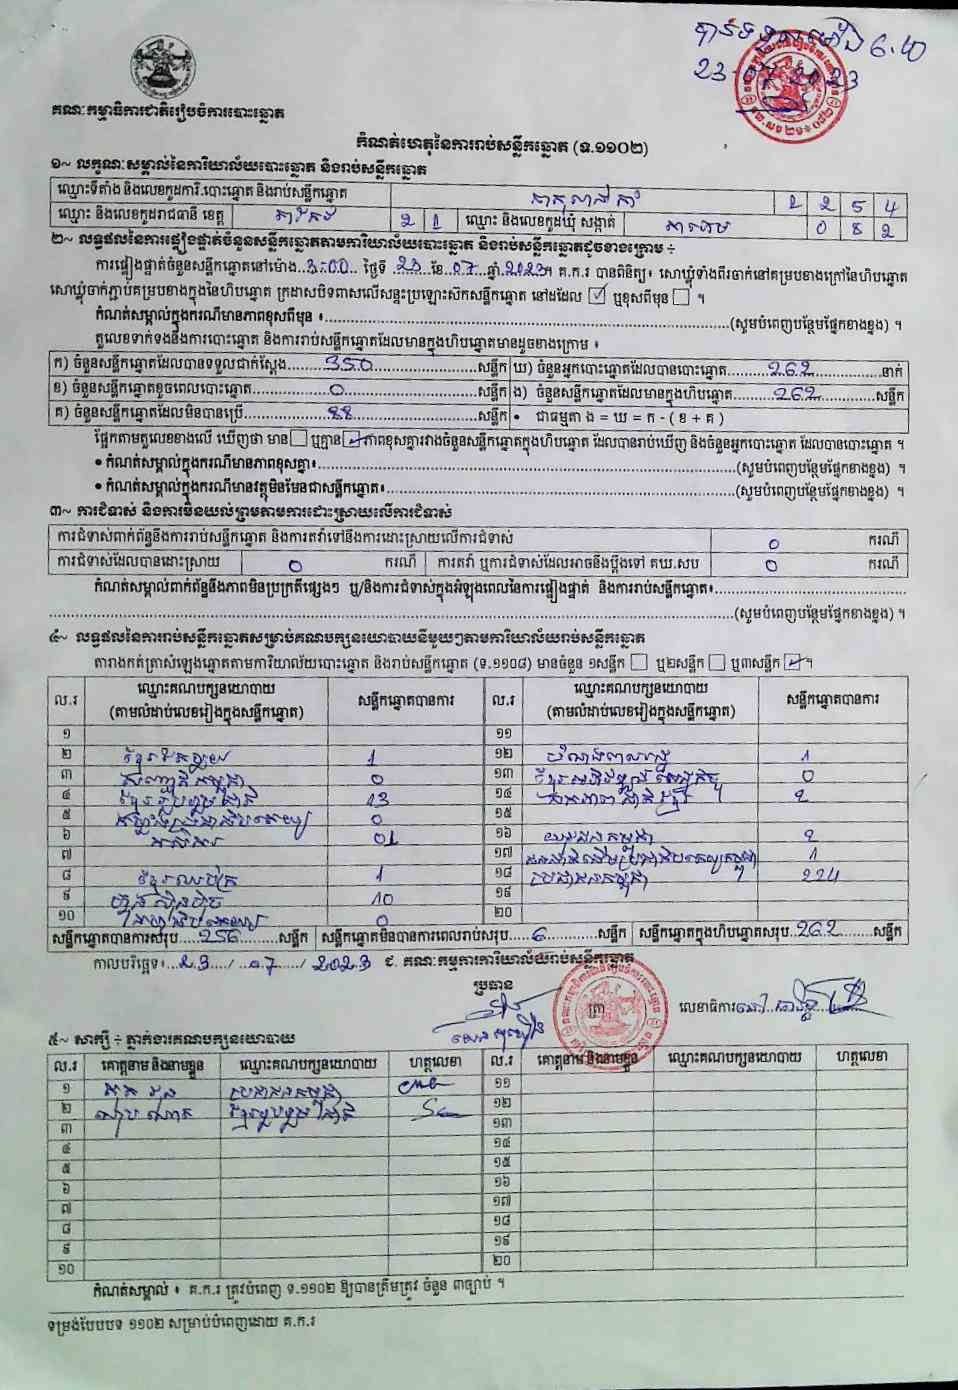 គណៈកម្មាធិការជាតិរៀបចំការបោះឆ្នោត
23 07 2023
កំណត់ហេតុនៃការរាប់សន្លឹកឆ្នោត (ទ.១១០២)
១~ លក្ខណៈសម្គាល់នៃការិយាល័យបោះឆ្នោត និងរាប់សន្លឹកឆ្នោត
ឈ្មោះទីតាំង និងលេខកូដការិ.បោះឆ្នោត និងរាប់សន្លឹកឆ្នោត 1 2 5 4
ឈ្មោះ និងលេខកូដរាជធានី ខេត្ត តាកែវ 2 1 ឈ្មោះ និងលេខកូដឃុំ សង្កាត់ 0 8 2
២~ លទ្ធផលនៃការផ្ទៀងផ្ទាត់ចំនួនសន្លឹកឆ្នោតតាមការិយាល័យបោះឆ្នោត និងរាប់សន្លឹកឆ្នោតដូចខាងក្រោម ÷
ការផ្ទៀងផ្ទាត់ចំនួនសន្លឹកឆ្នោតនៅម៉ោង..3:00 ថ្ងៃទី 23 ខែ..07 ឆ្នាំ 2023។ គ.ក.រ បានពិនិត្យ៖ សោឃ្លុំទាំងពីរចាក់នៅគម្របខាងក្រៅនៃហិបឆ្នោត
សោឃ្លុំចាក់ភ្ជាប់គម្របខាងក្នុងនៃហិបឆ្នោត ក្រដាសបិទពាសលើសន្ទះប្រឡោះស៊កសន្លឹកឆ្នោត នៅដដែល ☑ ឬខុសពីមុន ☐ ។
កំណត់សម្គាល់ក្នុងករណីមានភាពខុសពីមុន ៖ (សូមបំពេញបន្ថែមផ្នែកខាងខ្នង) ។
តួលេខទាក់ទងនឹងការបោះឆ្នោត និងការរាប់សន្លឹកឆ្នោតដែលមានក្នុងហិបឆ្នោតមានដូចខាងក្រោម ៖
ក) ចំនួនសន្លឹកឆ្នោតដែលបានទទួលជាក់ស្តែង 350 សន្លឹក ឃ) ចំនួនអ្នកបោះឆ្នោតដែលបានបោះឆ្នោត 262 នាក់
ខ) ចំនួនសន្លឹកឆ្នោតខូចពេលបោះឆ្នោត 0 សន្លឹក ង) ចំនួនសន្លឹកឆ្នោតដែលមានក្នុងហិបឆ្នោត 262 សន្លឹក
គ) ចំនួនសន្លឹកឆ្នោតដែលមិនបានប្រើ 88 សន្លឹក • ជាធម្មតា ង = ឃ = ក - ( ខ + គ )
ផ្អែកតាមតួលេខខាងលើ ឃើញថា មាន ☐ ឬគ្មាន ☑ ភាពខុសគ្នារវាងចំនួនសន្លឹកឆ្នោតក្នុងហិបឆ្នោត ដែលបានរាប់ឃើញ និងចំនួនអ្នកបោះឆ្នោត ដែលបានបោះឆ្នោត ។
• កំណត់សម្គាល់ក្នុងករណីមានភាពខុសគ្នា៖ (សូមបំពេញបន្ថែមផ្នែកខាងខ្នង) ។
• កំណត់សម្គាល់ក្នុងករណីមានវត្ថុមិនមែនជាសន្លឹកឆ្នោត៖ (សូមបំពេញបន្ថែមផ្នែកខាងខ្នង) ។
៣~ ការជំទាស់ និងការមិនយល់ព្រមតាមការដោះស្រាយលើការជំទាស់
ការជំទាស់ពាក់ព័ន្ធនឹងការរាប់សន្លឹកឆ្នោត និងការតវ៉ាទៅនឹងការដោះស្រាយលើការជំទាស់ 0 ករណី
ការជំទាស់ដែលបានដោះស្រាយ 0 ករណី ការតវ៉ា ឬការជំទាស់ដែលអាចនឹងប្តឹងទៅ គឃ.សប 0 ករណី
កំណត់សម្គាល់ពាក់ព័ន្ធនឹងភាពមិនប្រក្រតីផ្សេងៗ ឬ/និងការជំទាស់ក្នុងអំឡុងពេលនៃការផ្ទៀងផ្ទាត់ និងការរាប់សន្លឹកឆ្នោត៖
(សូមបំពេញបន្ថែមផ្នែកខាងខ្នង) ។
៤~ លទ្ធផលនៃការរាប់សន្លឹកឆ្នោតសម្រាប់គណបក្សនយោបាយនីមួយៗតាមការិយាល័យរាប់សន្លឹកឆ្នោត
តារាងកត់ត្រាសំឡេងឆ្នោតតាមការិយាល័យបោះឆ្នោត និងរាប់សន្លឹកឆ្នោត (ទ.១១០៨) មានចំនួន ១សន្លឹក ☐ ឬ២សន្លឹក ☐ ឬ៣សន្លឹក ☑ ។
ល.រ ឈ្មោះគណបក្សនយោបាយ (តាមលំដាប់លេខរៀងក្នុងសន្លឹកឆ្នោត) សន្លឹកឆ្នោតបានការ ល.រ ឈ្មោះគណបក្សនយោបាយ (តាមលំដាប់លេខរៀងក្នុងសន្លឹកឆ្នោត) សន្លឹកឆ្នោតបានការ
១ ១១
២ 1 ១២ 1
៣ 0 ១៣ 0
៤ ខ្មែររួបរួមជាតិ 13 ១៤ 2
៥ 0 ១៥
៦ 01 ១៦ យុវជនកម្ពុជា 2
៧ ១៧ 1
៨ 1 ១៨ ប្រជាជនកម្ពុជា 224
៩ ហ្វ៊ុនស៊ិនប៉ិច 10 ១៩
១០ 0 ២០
សន្លឹកឆ្នោតបានការសរុប 256 សន្លឹក សន្លឹកឆ្នោតមិនបានការពេលរាប់សរុប 6 សន្លឹក សន្លឹកឆ្នោតក្នុងហិបឆ្នោតសរុប 262 សន្លឹក
កាលបរិច្ឆេទ៖ 23 / 07 / 2023 ៩. គណៈកម្មការការិយាល័យរាប់សន្លឹកឆ្នោត
ប្រធាន ត្រា លេខាធិការ
៥~ សាក្សី ÷ ភ្នាក់ងារគណបក្សនយោបាយ
ល.រ គោត្តនាម និងនាមខ្លួន ឈ្មោះគណបក្សនយោបាយ ហត្ថលេខា ល.រ គោត្តនាម និងនាមខ្លួន ឈ្មោះគណបក្សនយោបាយ ហត្ថលេខា
១ ប្រជាជនកម្ពុជា ១១
២ ខ្មែររួបរួមជាតិ ១២
៣ ១៣
៤ ១៤
៥ ១៥
៦ ១៦
៧ ១៧
៨ ១៨
៩ ១៩
១០ ២០
កំណត់សម្គាល់ ៖ គ.ក.រ ត្រូវបំពេញ ទ.១១០២ ឱ្យបានត្រឹមត្រូវ ចំនួន ៣ច្បាប់ ។
ទម្រង់បែបបទ ១១០២ សម្រាប់បំពេញដោយ គ.ក.រ